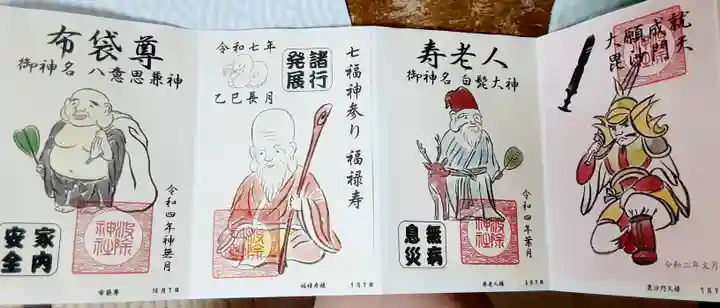 布袋尊
御神名 八意思兼神
家内
安全
令和四年神無月
波除
神社
布袋尊 10月7日
令和七年
乙巳長月
諸行
発展
七福神参り 福禄寿
波除
神社
福禄寿様 9月7日
寿老人
御神名 白髭大神
無病
息災
令和四年葉月
波除
神社
寿老人様 8月7日
諸願成就
大毘沙門天
令和二年文月
毘沙門天様 7月7日